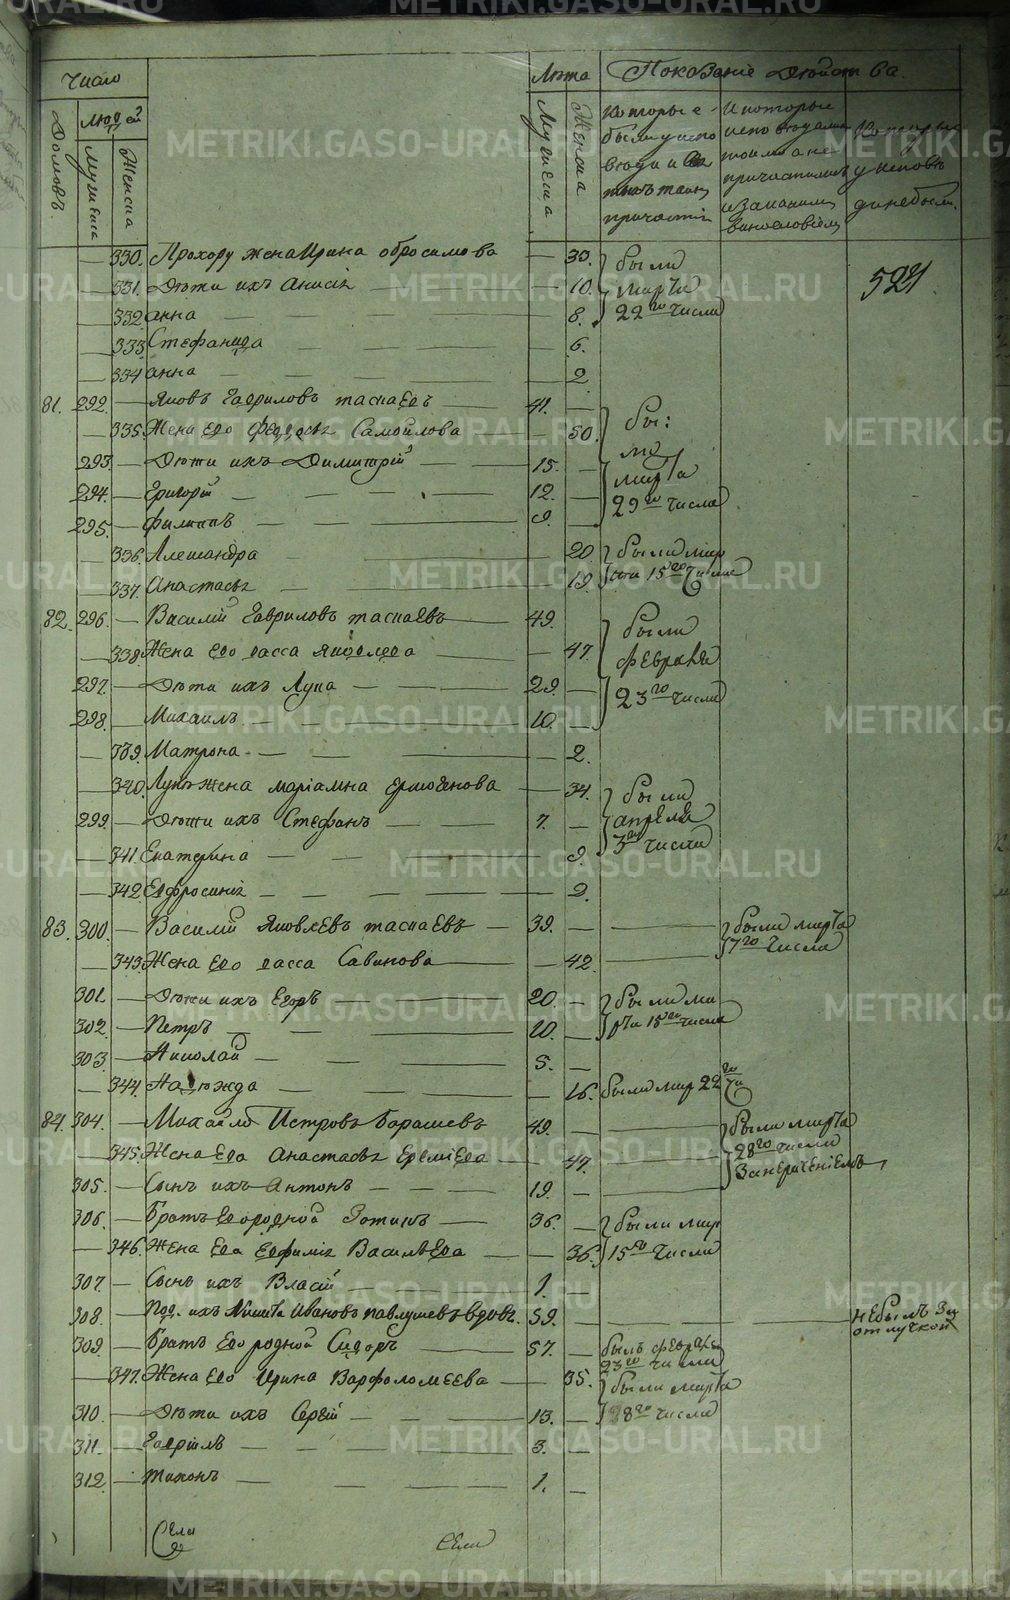 Число
Лѣта
Показаніе Дѣйства
Людей
Домовъ.
Мужеска
Женска
Мужеска
Женска
Которые
были у испо
вѣди и Свя
тыхъ таинъ
причастія
И которые
исповѣдались
токмо а не
причастились
и за какимъ
винословіемъ
Которые
у исповѣ
ди не были.
521
— 330. Прохору жена Ирина обросимова — 33. были
— 331. Дѣти ихъ Анисія — 10. марта
— 332. анна — 8. 22го числа
— 333. Стефанида — 6.
— 334 анна — 2
81. 292. — Яковъ Гавриловъ таскаевъ — 41. —
— 335. Жена его Федосья Самойлова — 50. бы:
ли
293. — Дѣти ихъ Димитрій — 15. — марта
294. — Григорій — 12. — 29го числа
295. — филиппъ — 9. —
— 336. Александра — 20. были мар
— 337. Анастасья — 19. та 15го числа
82. 296. — Василій Гавриловъ таскаевъ — 49. были
— 338 Жена его васса Яковлева — 47. февраля
297. — Дѣти ихъ Лука — 29. — 23го числа
298. — Михаилъ — 10. —
— 339. Матрона — 2.
— 340. Лукѣ жена маріамна ермогенова — 34. были
299. — Дѣти ихъ Стефанъ — 7. — апреля
3го числа
— 341. Екатерина — 9.
— 342 Евфросинія — 2.
83. 300. — Василій Яковлевъ таскаевъ — 39. — были марта
7го числа
— 343. Жена его васса Савинова — 42.
301. — Дѣти ихъ Егоръ — 20. — были ма
302. — Петръ — 10. — рта 15го числа
303. — Николай — 5. —
— 344. Надѣжда — 16. были мар 22го чи
84. 304. — Михайло Петровъ — 49. — были марта
28го числа
— 345. Жена его Анастасья Еремѣева — 47.
305. — Сынъ ихъ Антонъ — 19. —
306. — Братъ его родной Фотинъ — 36. — были мар
— 346. Жена его Евфимія Васильева — 36. 15го числа
307. — Сынъ ихъ Власій — 1. —
308. — Под. ихъ Никита Ивановъ павлушевъ вдовъ. 59. — не былъ за
отлучкой
309 — Братъ его родной Сидоръ — 57. — былъ февраля
23го числа
— 347. Жена его Ирина Варфоломѣева — 35. были марта
310. — Дѣти ихъ Сергій — 13. — 28го числа
311. — Гавріилъ — 3. —
312. — тихонъ — 1. —
METRIKI.GASO-URAL.RU